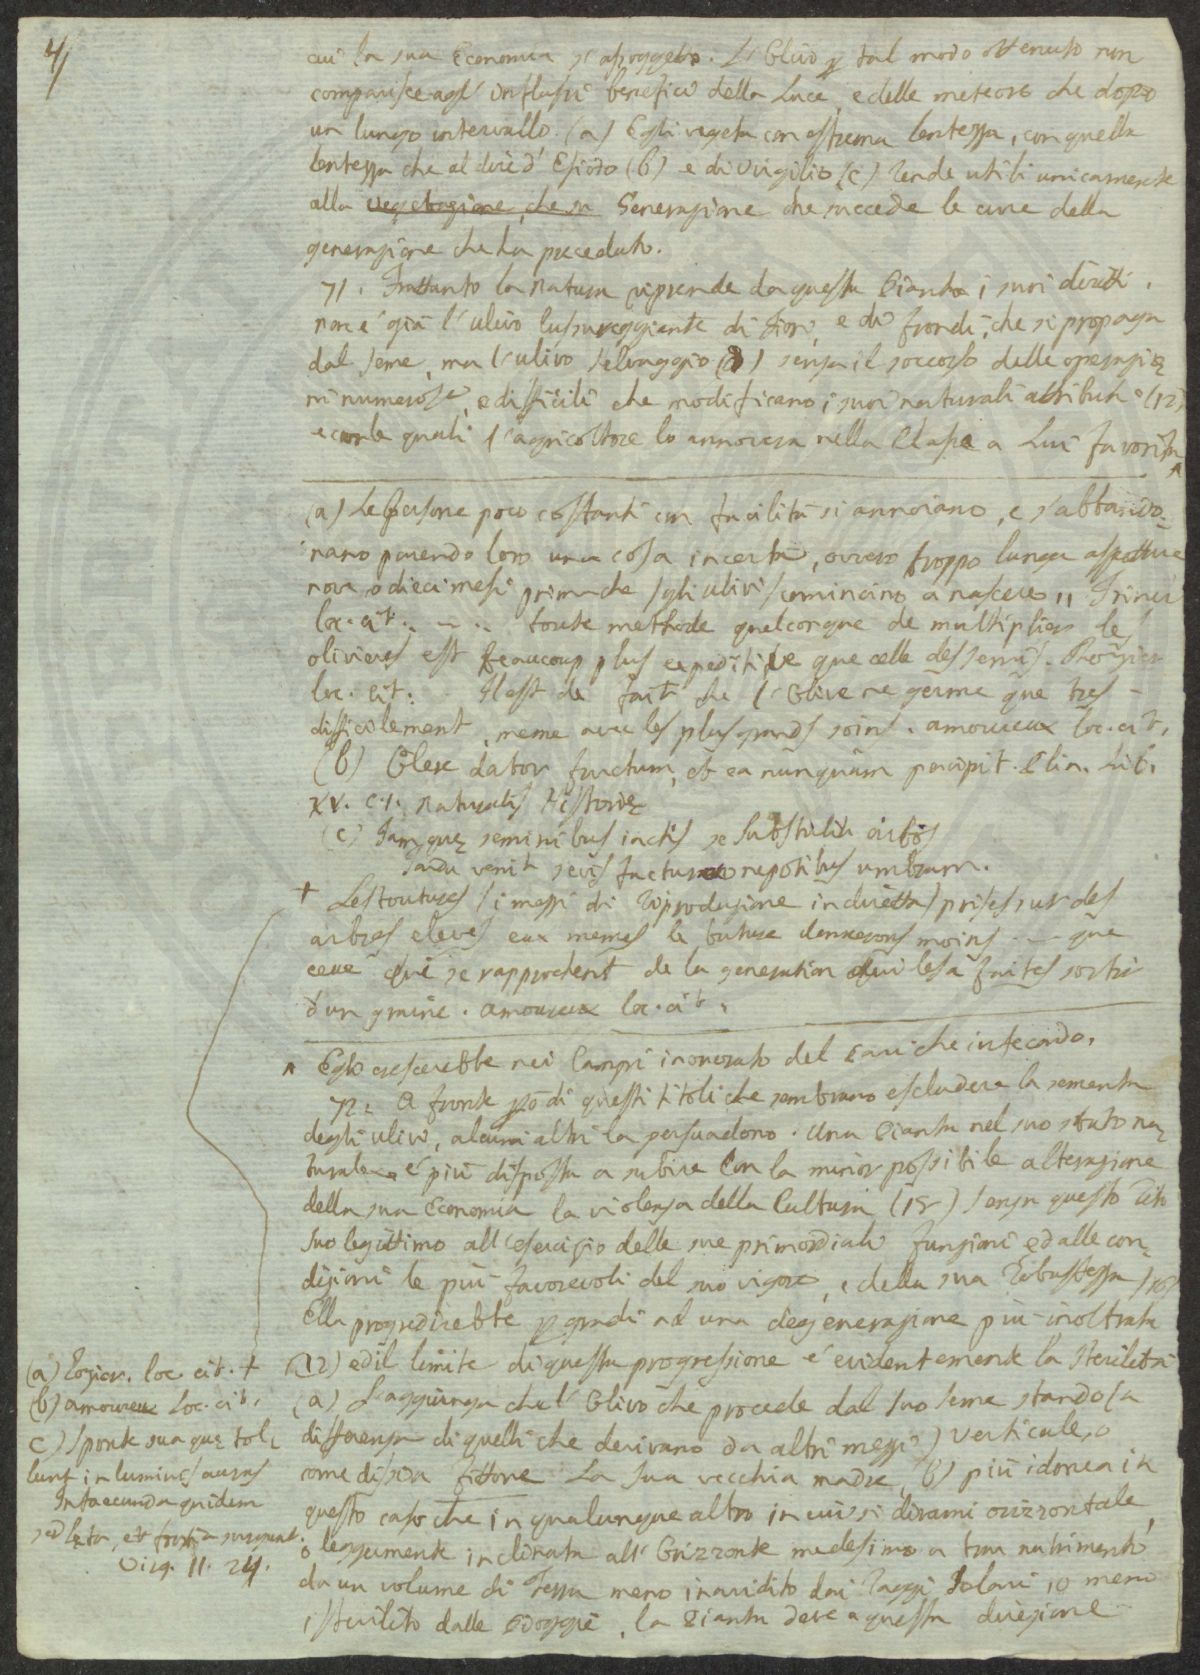 4/
cui la sua Economia si assoggetta. L'Olivo p tal modo ottenuto non
comparisce agl' influssi benefici della Luce, e delle meteore che dopo
un lungo intervallo. (a) Egli vegeta con estrema lentezza, con quella
lentezza che al dire d' Esiodo (b) e di Virgilio (c) rende utili unicamente
alla vegetazione, che su Generazione che succede le cure della
generazione che ha preceduto.
71. Frattanto la natura riprende da questa Pianta i suoi diritti.
non é già l'ulivo lussureggiante di fiori, e di frondi, che si propaga
dal seme, ma l'ulivo selvaggio (d) senza il soccorso delle operazio
ni numerose, e difficili che modificano i suoi naturali attributi (12)
e con le quali l'agricoltore lo annovera nella Classe a Lui favorita ^
(a) Le Persone poco costanti con facilità si annoiano, e s'abbando-
nano parendo loro una cosa incerta, ovvero troppo lunga aspettare
nove, o dieci mesi prima che / gli ulivi / comincino a nascere ,, Trinci
loc. cit. . — . . toute methode quelconque de multiplier les
oliviers est beaucoup plus expeditive que celle des semis. Rozier
loc. cit. . Il est de fait che l'Olive ne germe que tres -
difficilement, meme avec les plus grands soins. amoureux loc. cit.
(b) Oleae sator fructum, et ea nunquam percipit. Plin. Lib.
XV. c. 1. Naturalis Historię
(c) Jam quę seminibus iactis se substulit arbos
Tarda venit seris factura nepotibus umbram.
+ Les boutures / i mezzi di riproduzione indiretta / prises sur des
arbres elevés eux memes de bouture donnerons moins . — que
ceux qui se rapprochent de la generation qui les a faites sortir
d'un graine. amoureux loc. cit.
^ Egli crescerebbe nei Campi inonorato del pari che infecondo.
72. A fronte pò di questi titoli che sembrano escludere la sementa
degli ulivi, alcuni altri la persuadono. Una Pianta nel suo stato na-
turale é più disposta a subire con la minor possibile alterazione
della sua Economia la violenza della Cultura (15) senza questo titolo
suo legittimo all' esercizio delle sue primordiali funzioni ed alle con-
dizioni le più favorevoli del suo vigore, e della sua Robustezza (16)
Ella progredirebbe p gradi ad una degenerazione più inoltrata
(12) ed il limite di questa progressione é evidentemente la sterilità
(a) S'aggiunga che l' Olivo che procede dal suo seme stando / a
differenza di quelli che derivano da altri mezzi / verticale, o
come dissesi fittone La sua vecchia madre (b) più idonea in
questo caso che in qualunque altro in cui si dirami orizzontale,
o legermente inclinata all' Orizzonte medesimo a trar nutrimento
da un volume di Terra meno inaridito dai Raggi Solari, o meno
isterilito dalle Pioggie, la Pianta deve a questa direzione
(a) Rozier. loc. cit. +
(b) amoureux loc. cit.
c) Sponte sua quę tol-
lunt in luminis auras
Infaecunda quidem
sed lęta, et fortia surgunt.
Virg. 11. 24.